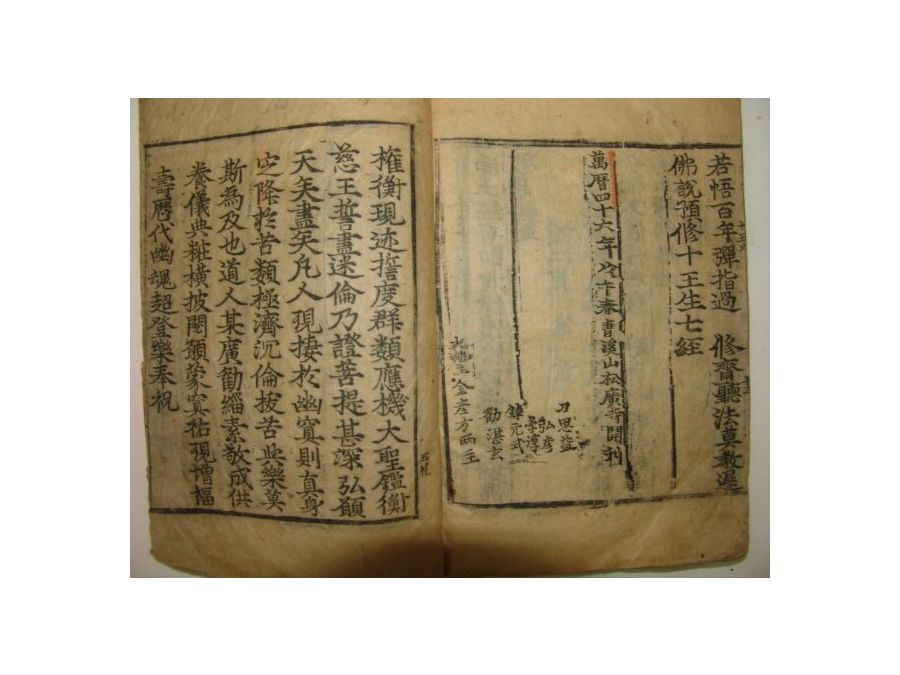 若悟百年彈指過 修齋聽法莫教遲
佛說預修十王生七経
萬曆四十六年戊午春曺溪山松廣寺開刊
刀思益
弘彦
淳
鍊元式
勸湛玄
大施主金彦方兩主
權衡現迹誓度群類應機大聖鑑衡
慈王誓盡迷倫乃證菩提甚深弘願
天矣盡矣凡人現捿於幽寘則真身
之降於苦類極濟沉倫拔苦与樂莫
斯為及也道人某廣勸緇素敬成供
養儀典粧橫披閱願蒙冥祐現增福
壽曆代幽魂超登樂奉祝